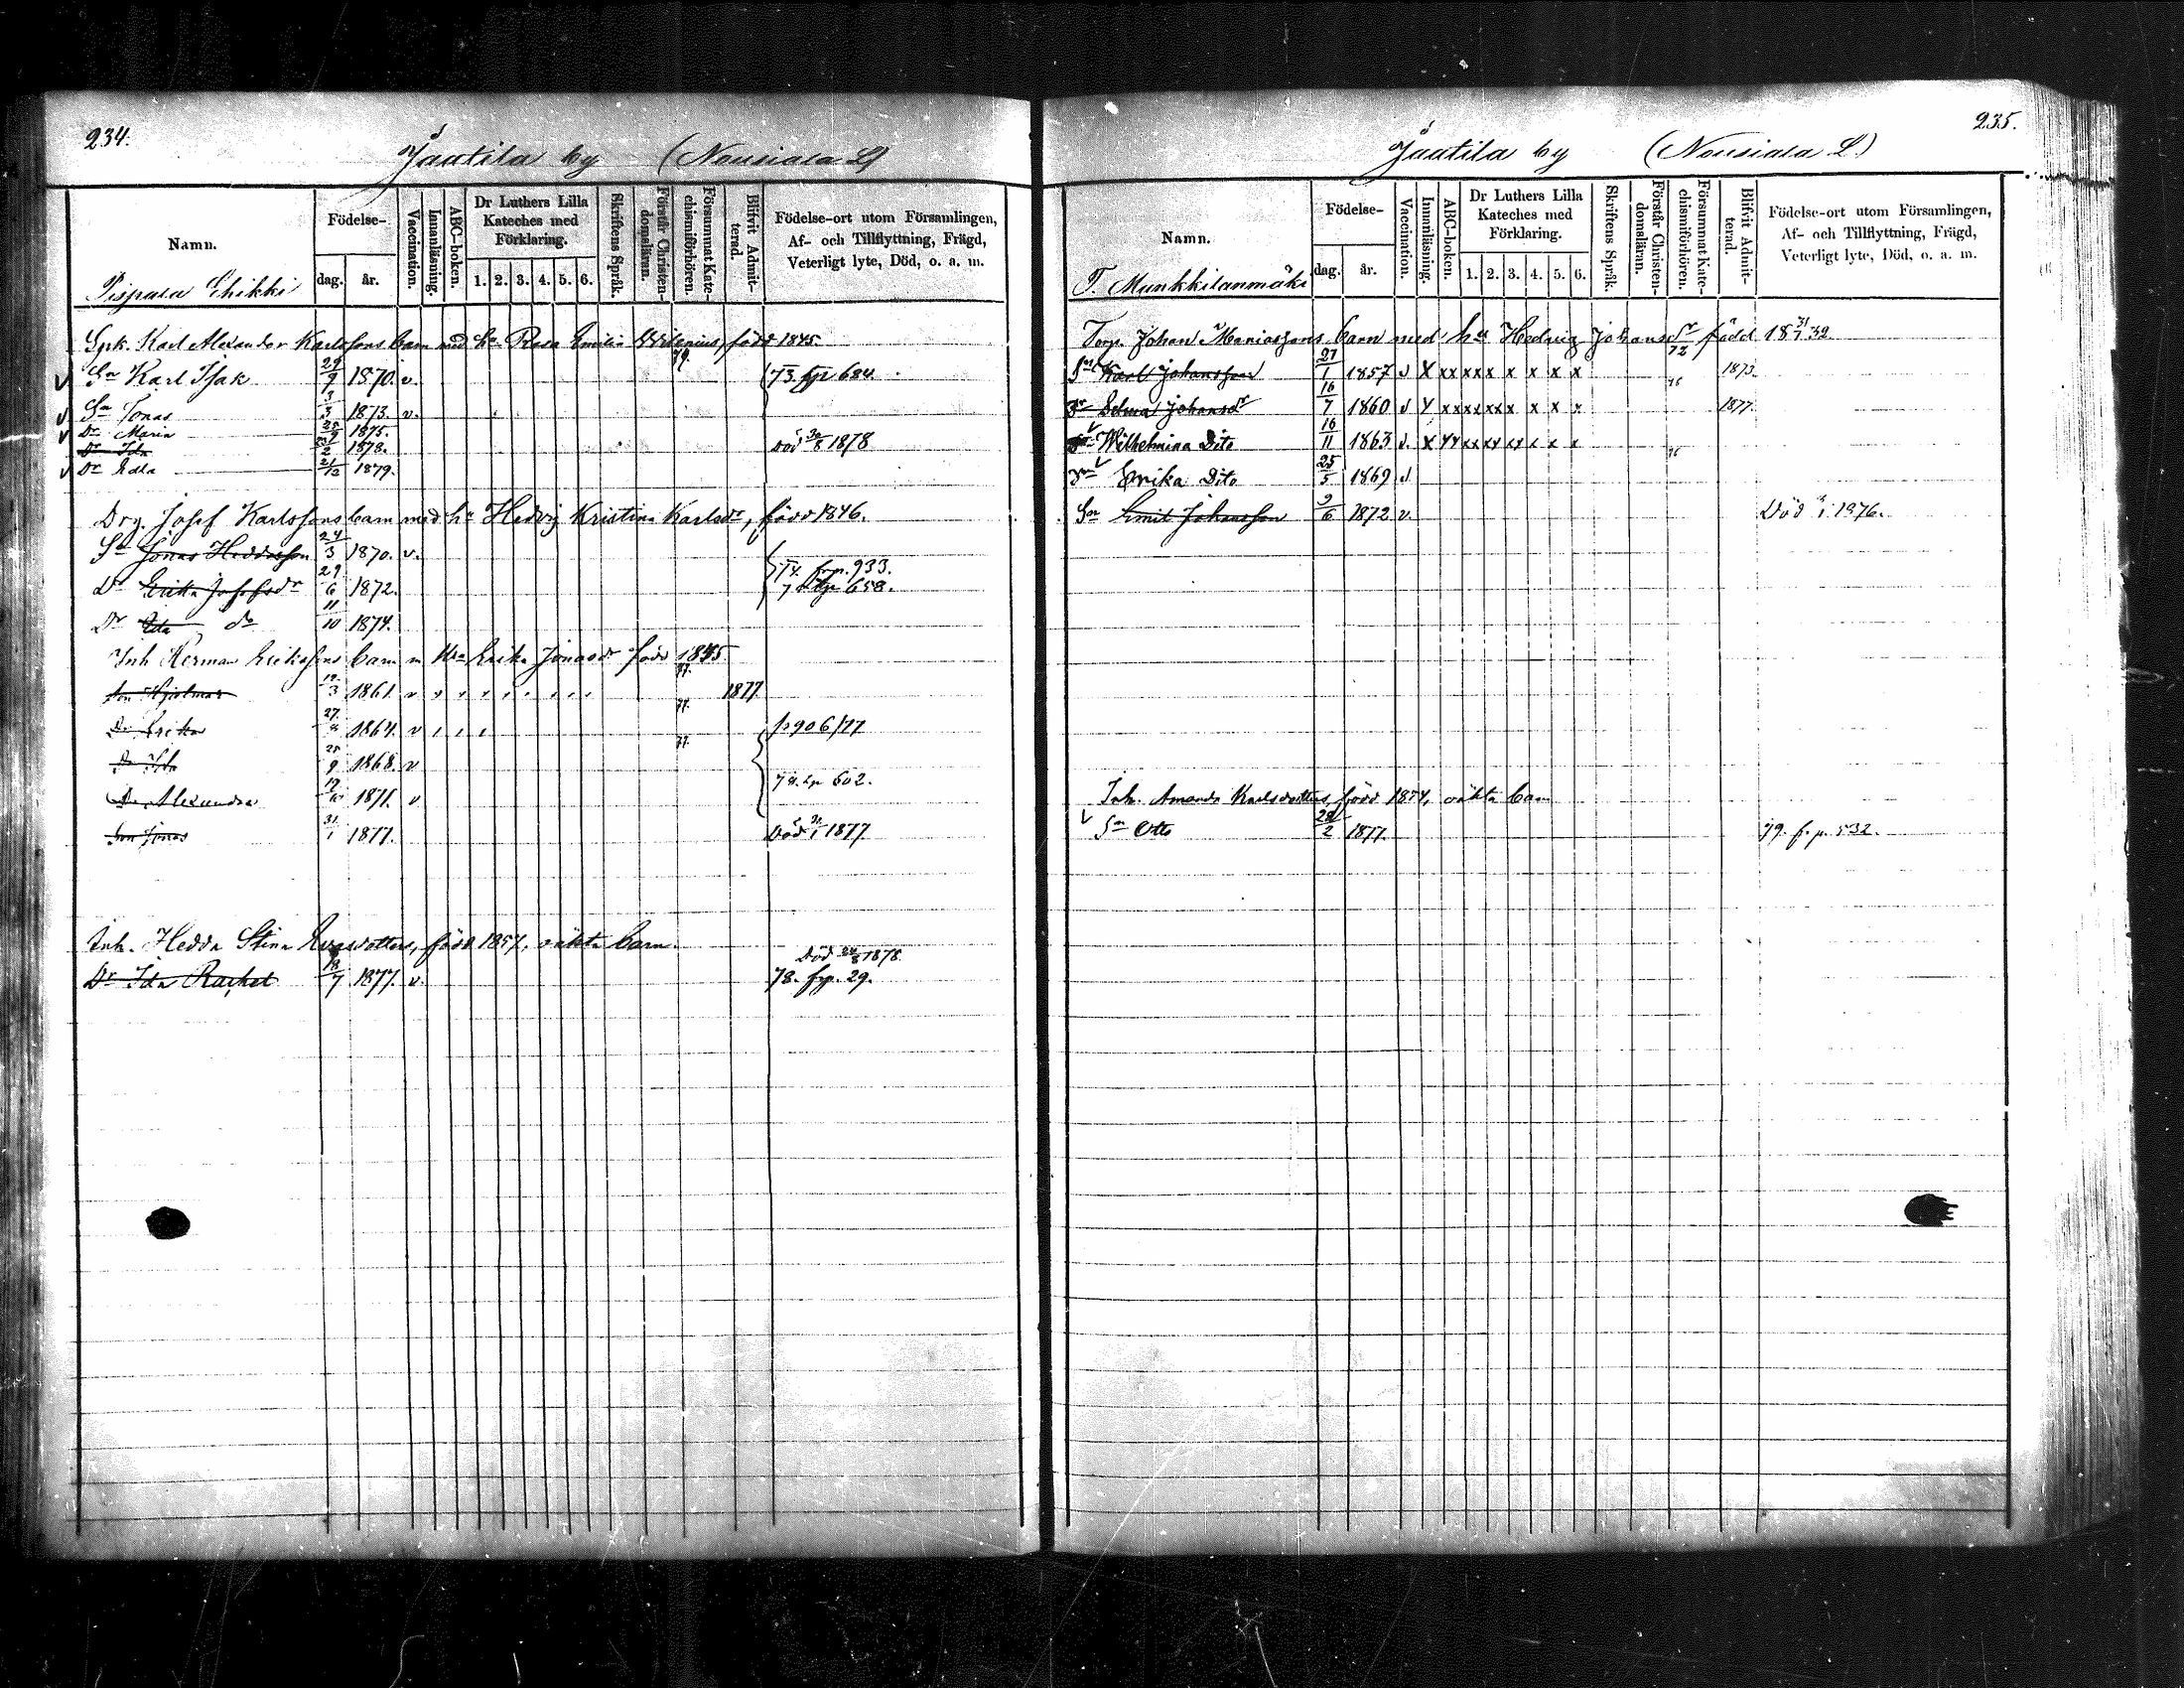 234.
Jautila by (Nousiala L)
Namn.
Födelse-
dag. år.
Vaccination.
Innanläsning.
ABC-boken.
Dr Luthers Lilla Kateches med Förklaring.
1. 2. 3. 4. 5. 6.
Skriftens Språk.
Förstår Christen-domsläran.
Försummat Kate-chismiförhören.
Blifvit Admit-terad.
Födelse-ort utom Församlingen,
Af- och Tillflyttning, Frägd,
Veterligt lyte, Död, o. a. m.
Pispala Ehikki
Spk. Karl Alexander Karlssons barn med hu Rosa Emilia Wilenius, född 1845.
79.
v Sn Karl Isak 29/9 1870. v. 73. fp 684.
v Sn Jonas 3/3 1873. v.
v Dr Maria 1875.
Dr Ida 1878. Död 30/8 1878
v Dr Edla 2/12 1879.
Drg. Josef Karlssons barn med hu Hedvig Kristina Karlsdr, född 1846.
Sn Jonas 24/3 1870. v.
Dr Erika Josefsdr 29/6 1872. 74. frp. 933.
658.
Dr do 11/10 1874.
Inh Herman Erikssons barn m Erika Jonasdr född 1835
77.
Son Hjalmar 12/3 1861. v 1877.
77.
Dr Erika 27 1864. v p 906/77
77.
Dr Ida 9 1868. v
602.
Dr Alexandra 1871. v
Son Jonas 31/1 1877. Död 1877.
Inh. Hedda Stina Evasdotters, född 1857, oäkta barn.
Död 1878
Dr Ida Rachel 18/7 1877. v. 78. frp. 29.
235.
Jautila by (Nousiala L.)
Namn.
Födelse-
dag. år.
Vaccination.
Innanläsning.
ABC-boken.
Dr Luthers Lilla Kateches med Förklaring.
1. 2. 3. 4. 5. 6.
Skriftens Språk.
Förstår Christen-domsläran.
Försummat Kate-chismiförhören.
Blifvit Admit-terad.
Födelse-ort utom Församlingen,
Af- och Tillflyttning, Frägd,
Veterligt lyte, Död, o. a. m.
T. Munkkilanmäki
Torp. Johan Maniassons barn med hu Hedvig Johansdr född 18 31/1 32
72
Sn Karl Johansson 27/1 1857 v x xx xx x x x x x 1873.
76
Dr Selma Johansdr 16/7 1860 v x xx xx xx x x x x 1877.
Dr Wilhelmina Dito 16/11 1863 v. x xx xx xx xx x x x
76
v Erika Dito 25/5 1869 v
Sn Emil Johansson 9/6 1872 v. Död 1876.
Inh. Amanda Karlsdotters, född 1854, oäkta barn
v Sn Otto 28/2 1877. 79. fr. p. 532.